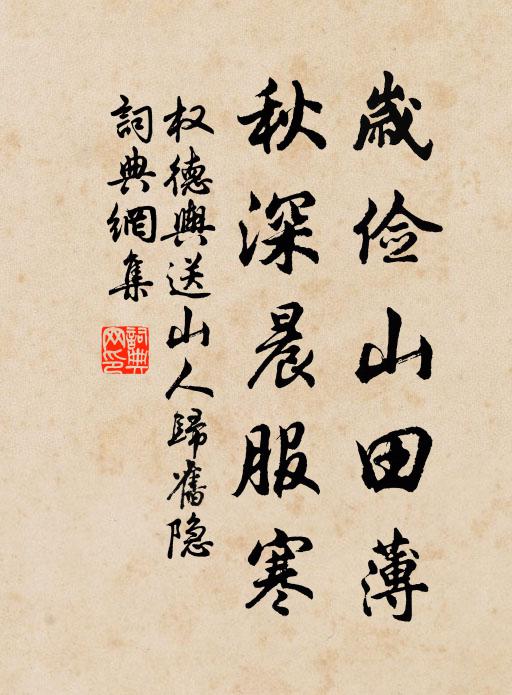 歲俭山田薄
秋深晨服寒
权德輿送山人歸舊隐
詞典網集
詞典網印